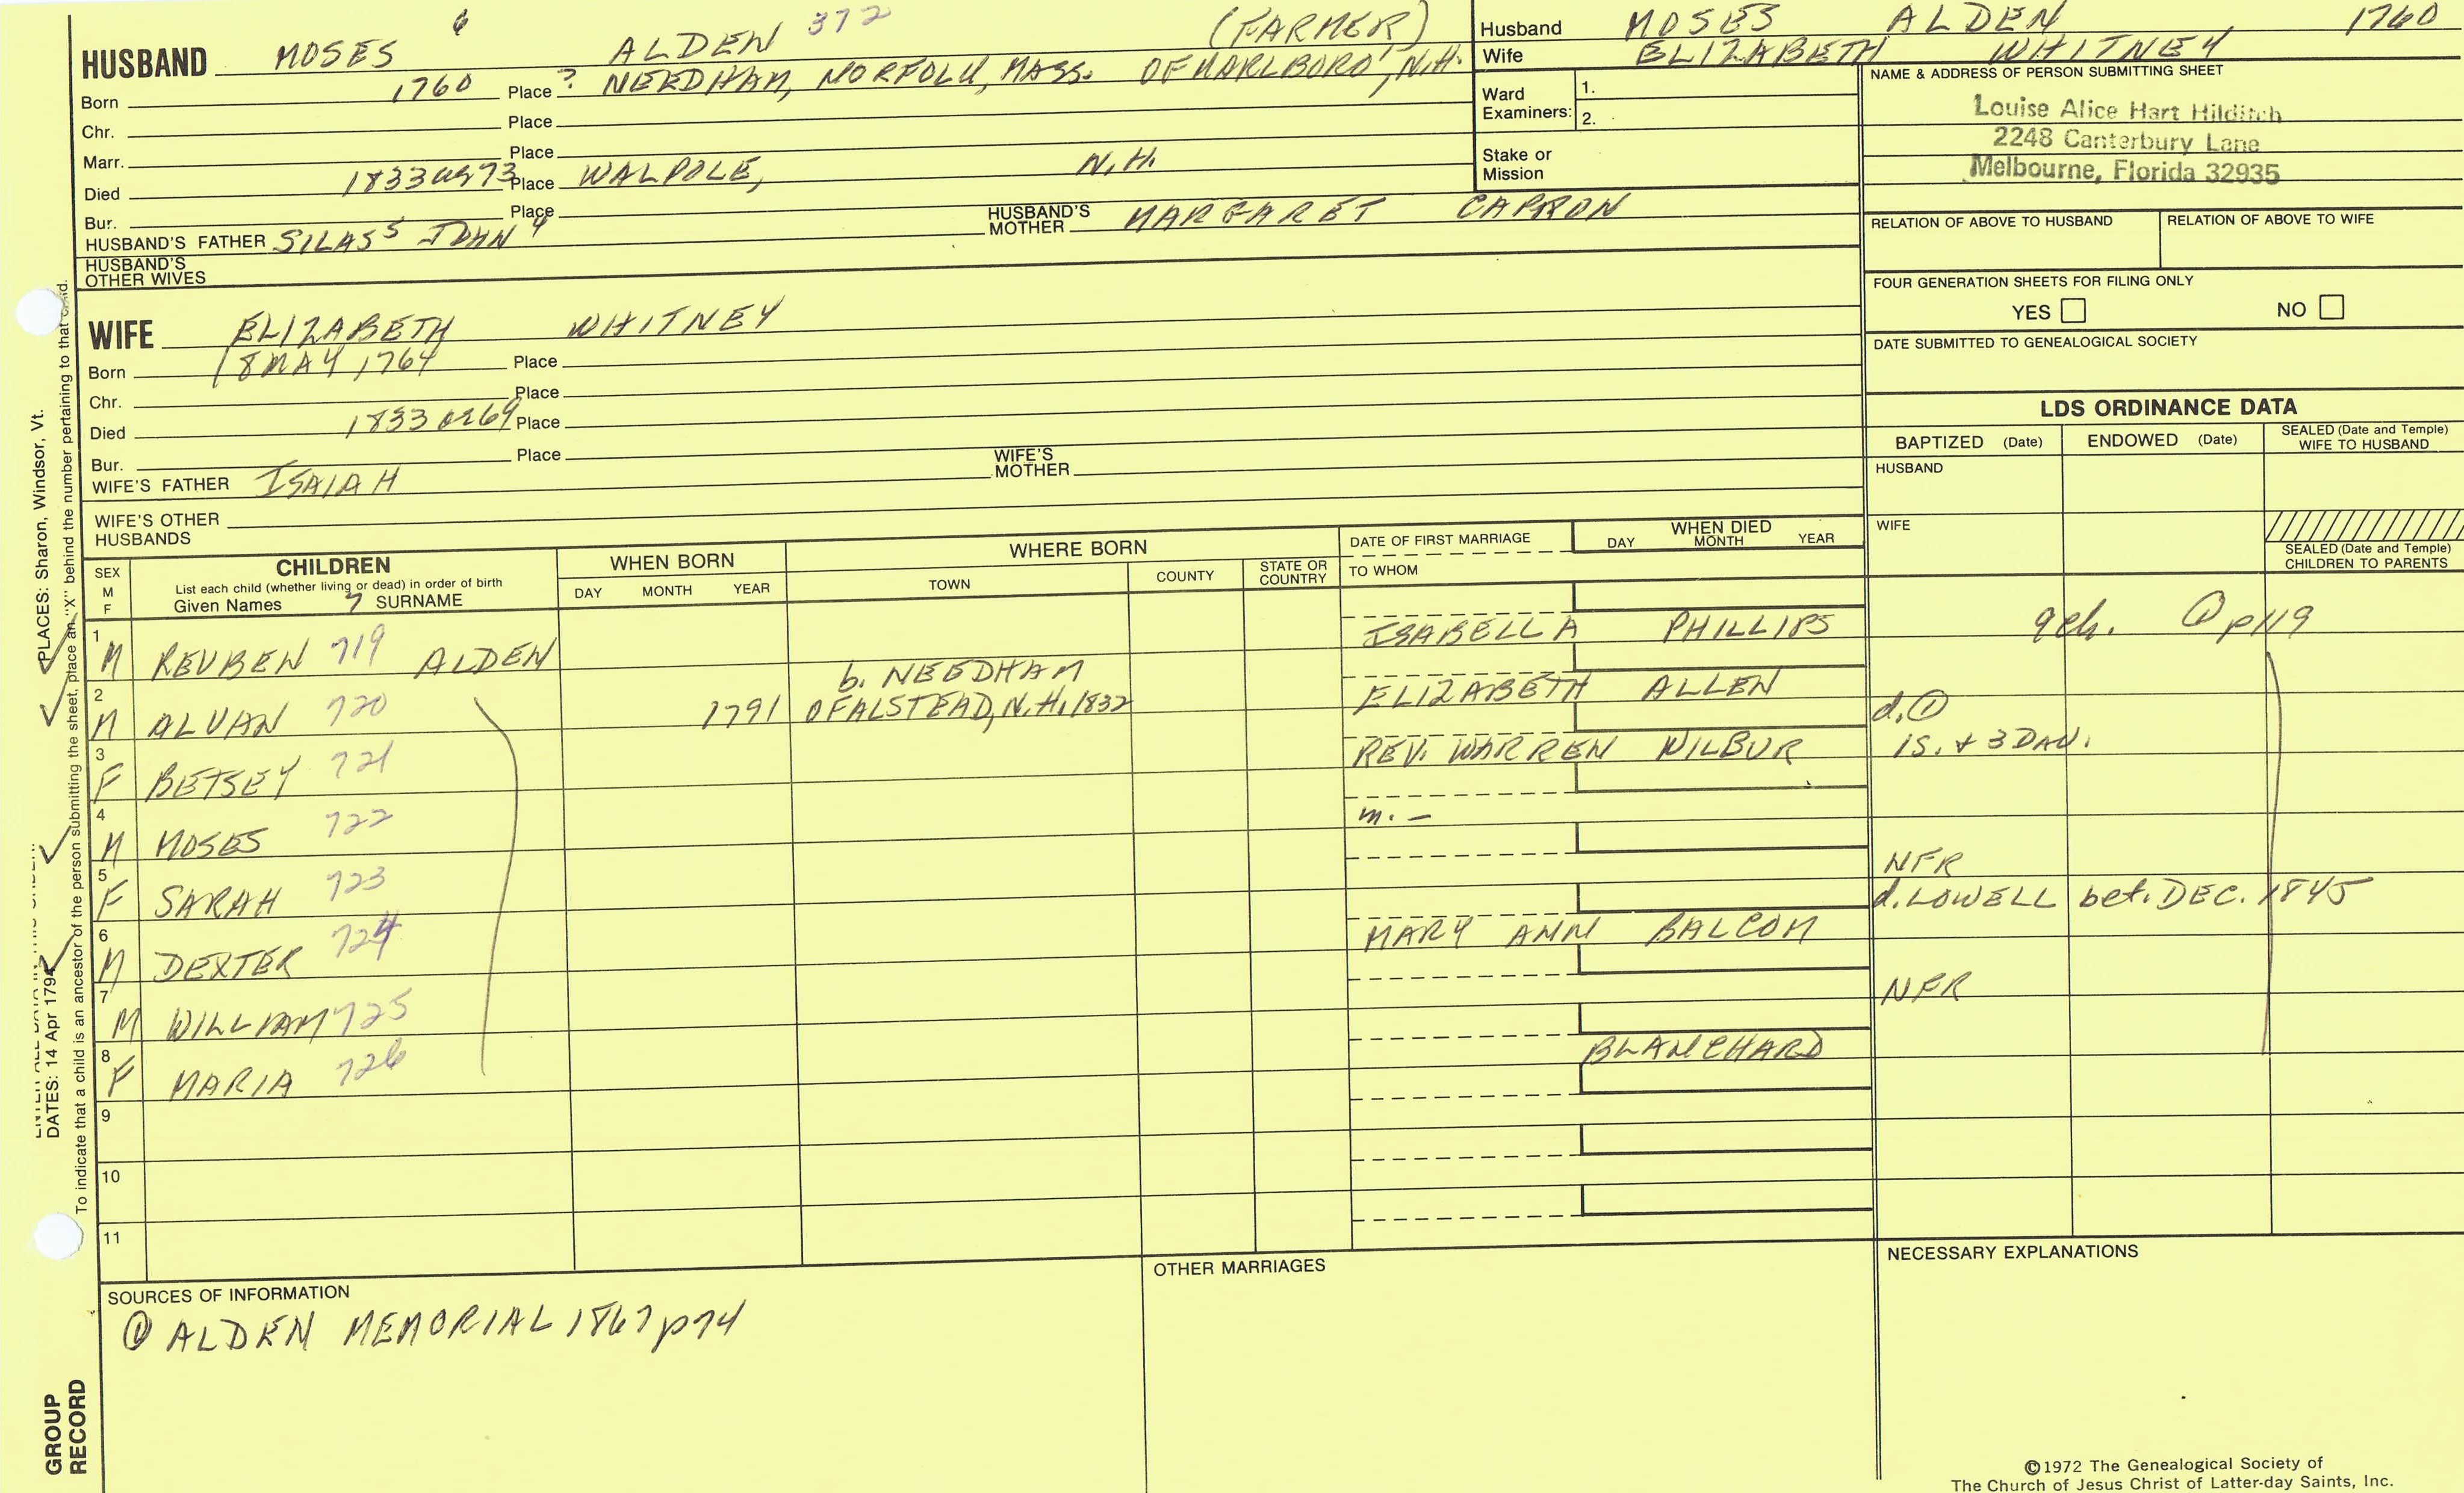 HUSBAND MOSES 6 ALDEN 372 (FARMER)
Born 1760 Place ? NEEDHAM, NORFOLK, MASS. OF MARLBORO', N.H.
Chr. Place
Marr. Place
Died 1833 a 73 Place WALPOLE, N.H.
Bur. Place
HUSBAND'S FATHER SILAS 5 JOHN 4 HUSBAND'S MOTHER MARGARET CAPRON
HUSBAND'S OTHER WIVES
WIFE ELIZABETH WHITNEY
Born 18 MAY 1764 Place
Chr. Place
Died 1833 a 69 Place
Bur. Place
WIFE'S FATHER ISAIAH WIFE'S MOTHER
WIFE'S OTHER HUSBANDS
Husband MOSES ALDEN 1760
Wife ELIZABETH WHITNEY
Ward Examiners: 1.
2.
Stake or Mission
NAME & ADDRESS OF PERSON SUBMITTING SHEET
Louise Alice Hart Hilditch
2248 Canterbury Lane
Melbourne, Florida 32935
RELATION OF ABOVE TO HUSBAND RELATION OF ABOVE TO WIFE
FOUR GENERATION SHEETS FOR FILING ONLY
YES NO
DATE SUBMITTED TO GENEALOGICAL SOCIETY
LDS ORDINANCE DATA
BAPTIZED (Date) ENDOWED (Date) SEALED (Date and Temple) WIFE TO HUSBAND
HUSBAND
WIFE
SEALED (Date and Temple) CHILDREN TO PARENTS
SEX M F
CHILDREN
List each child (whether living or dead) in order of birth
Given Names 7 SURNAME
WHEN BORN
DAY MONTH YEAR
WHERE BORN
TOWN COUNTY STATE OR COUNTRY
DATE OF FIRST MARRIAGE
TO WHOM
WHEN DIED
DAY MONTH YEAR
1 M REUBEN 719 ALDEN ISABELLA PHILLIPS 9 ch. ① p119
2 M ALVAN 720 1791 b. NEEDHAM
OF ALSTEAD, N.H. 1832 ELIZABETH ALLEN d. ①
3 F BETSEY 721 REV. WARREN WILBUR 1S. + 3 DAU.
4 M MOSES 722 m. –
5 F SARAH 723 NFR
6 M DEXTER 724 MARY ANN BALCOM d. LOWELL bef. DEC. 1845
7 M WILLIAM 725 NFR
8 F MARIA 726 BLANCHARD
9
10
11
SOURCES OF INFORMATION
① ALDEN MEMORIAL 1867 p74
OTHER MARRIAGES
NECESSARY EXPLANATIONS
©1972 The Genealogical Society of
The Church of Jesus Christ of Latter-day Saints, Inc.
PLACES: Sharon, Windsor, Vt.
DATES: 14 Apr 1794
To indicate that a child is an ancestor of the person submitting the sheet, place an "X" behind the number pertaining to that child.
GROUP
RECORD